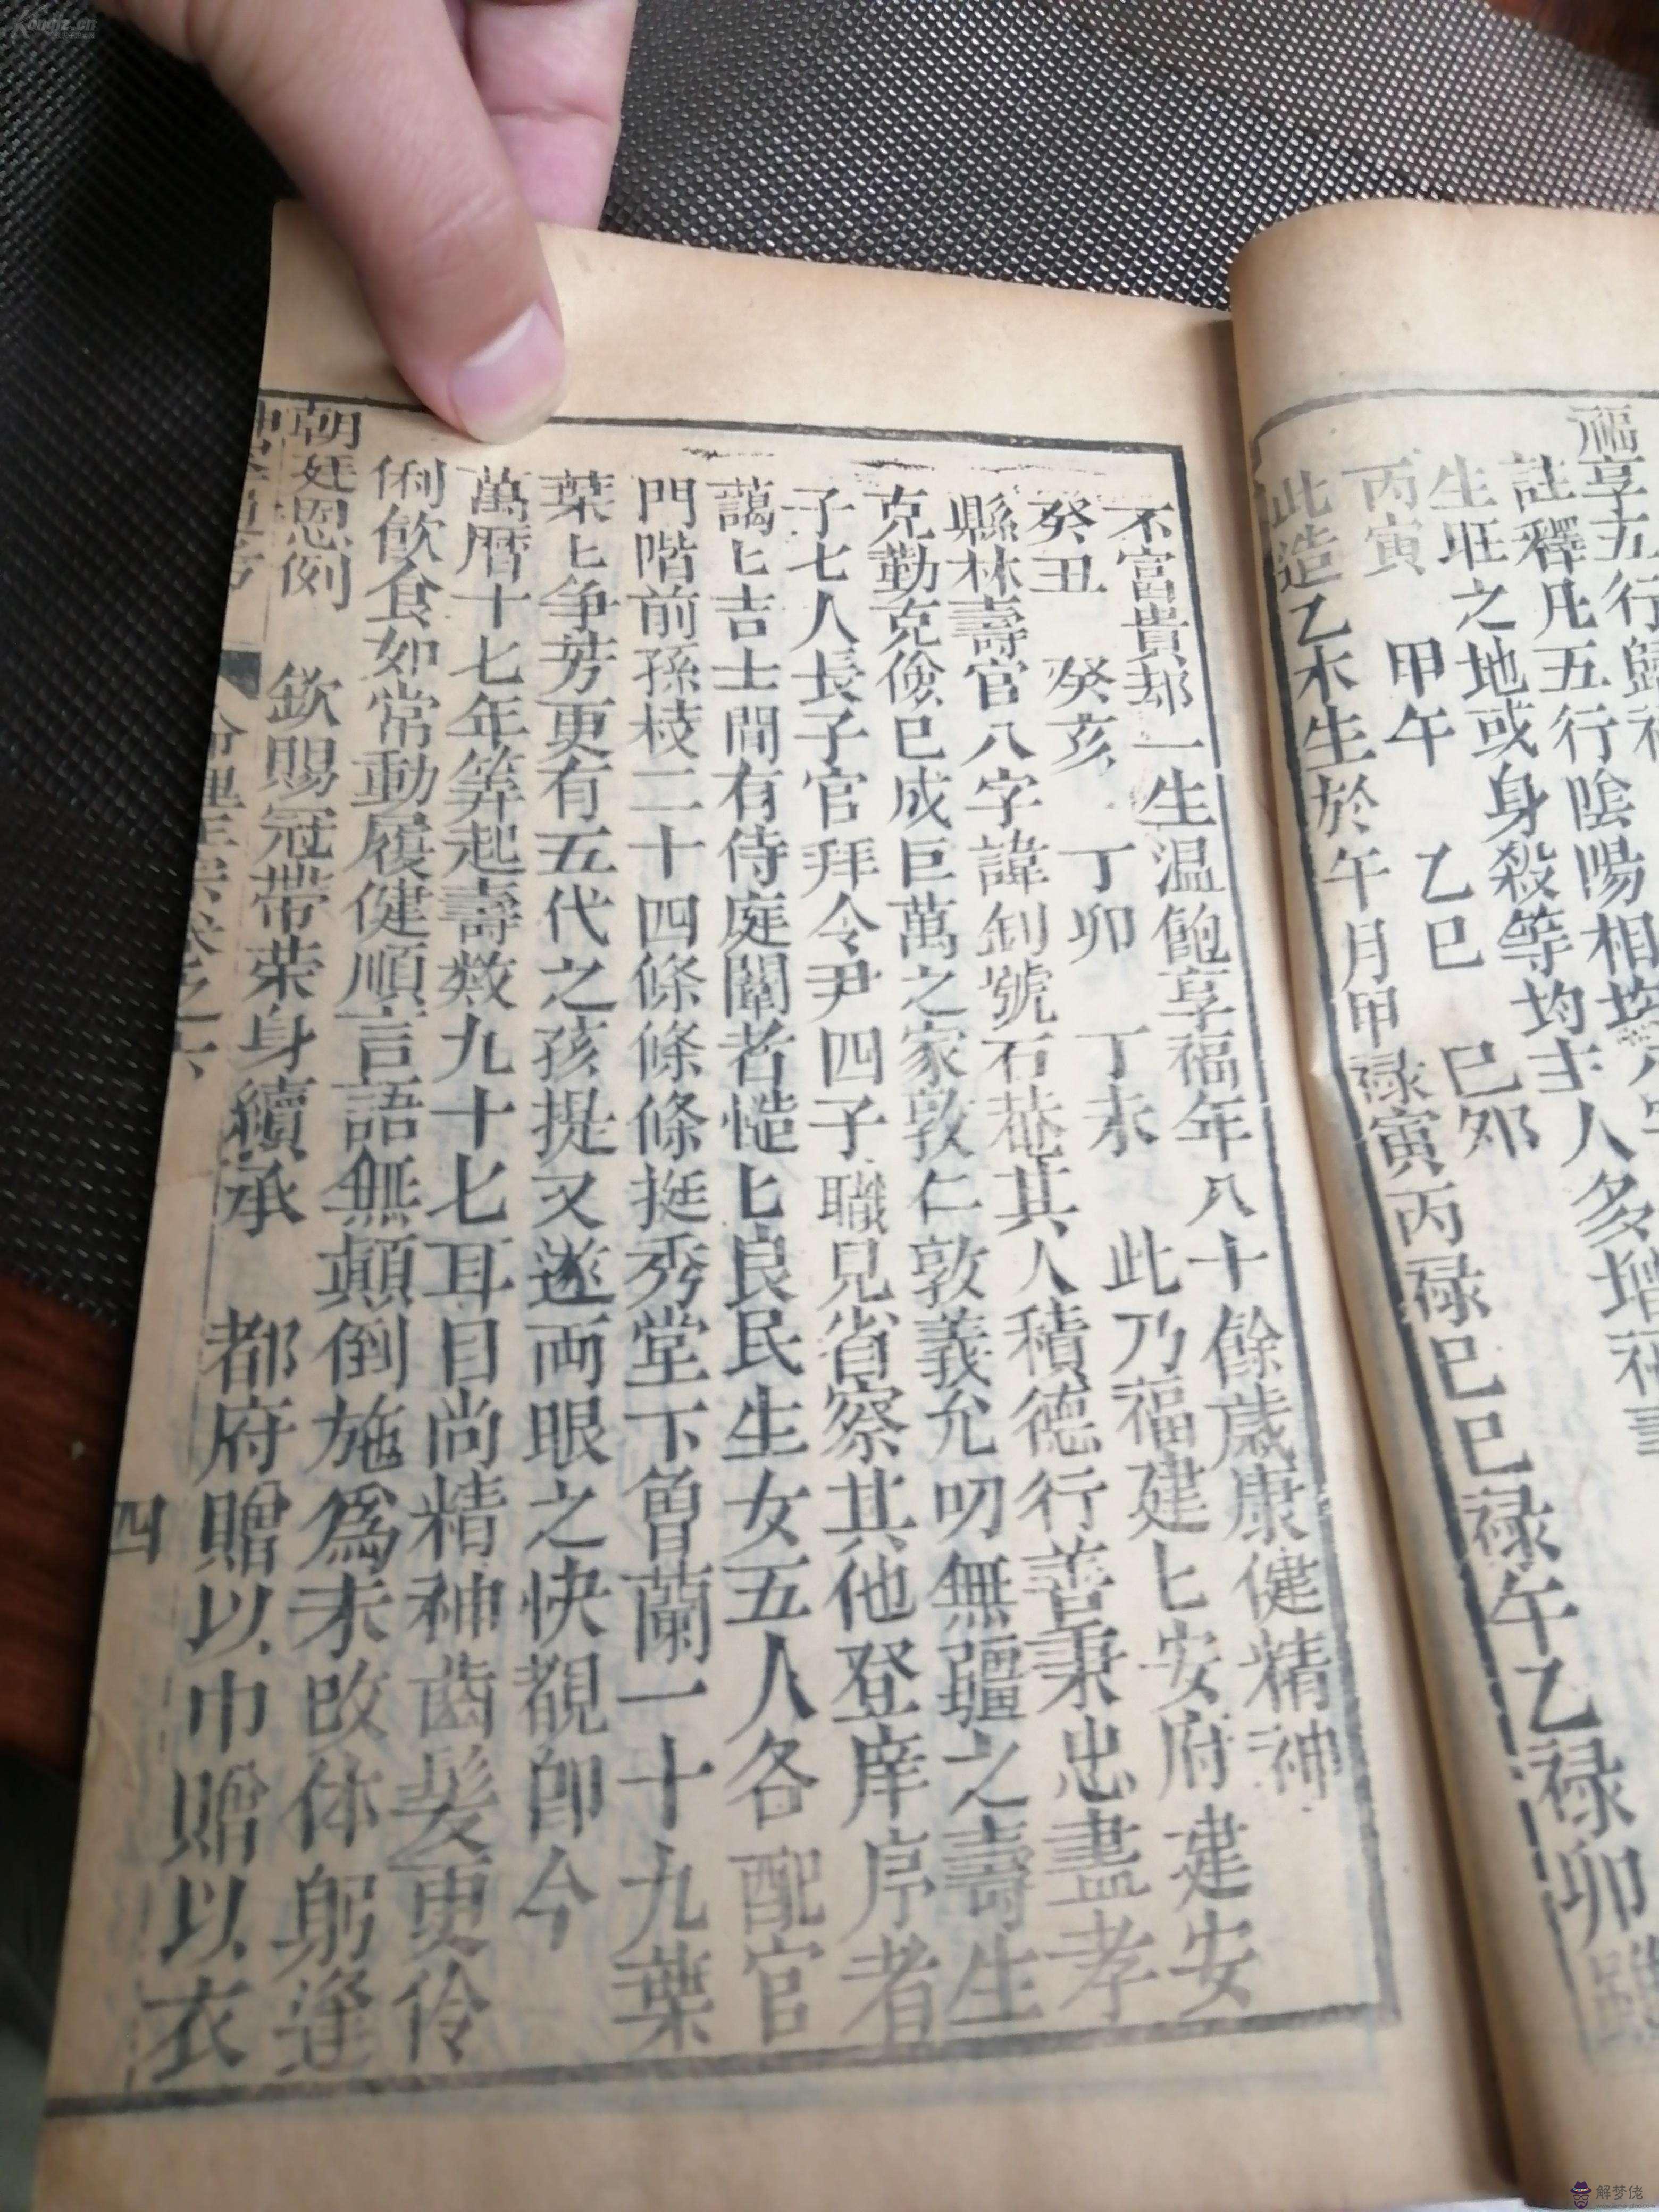 福享五行歸祿
註釋凡五行陰陽相均
生旺之地或身殺等均主人多增福壽
丙寅　甲午　乙巳　己卯
此造乙木生於午月甲祿寅丙祿巳巳祿午乙祿卯雖
不富貴却一生温飽享福年八十餘歲康健精神
癸丑　癸亥　丁卯　丁未　此乃福建匕安府建安
縣林壽官八字諱釗號石菴其人積德行善秉忠盡孝
克勤克儉已成巨萬之家敦仁敦義允叨無疆之壽生
子七人長子官拜令尹四子職兒省察其他登庠序者
藹匕吉士間有侍庭闈者慥匕良民生女五人各配官
門階前孫枝二十四條條條挺秀堂下曾蘭一十九葉
葉匕争芳更有五代之孩提又遂兩眼之快覩卽今
萬曆十七年筭起壽数九十七耳目尚精神齒髮更伶
俐飲食如常動履健順言語無顛倒施爲未改体躬逢
朝廷恩例　欽賜冠帶荣身續承　都府贈以巾贈以衣
四
解梦佬